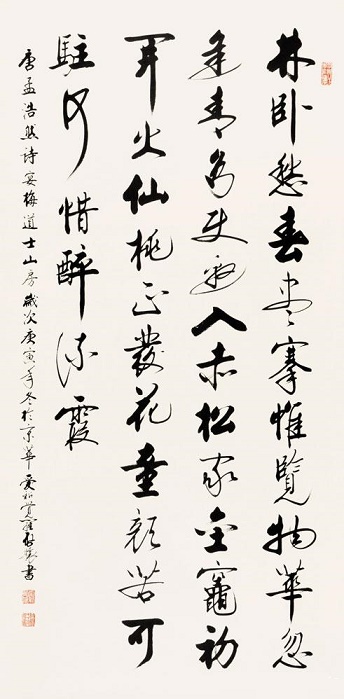 林卧愁春盡搴惟覽物華忽
逢青鳥使邀入赤松家金竈初
開火仙桃正發花童顏若可
駐何惜醉流霞
唐孟浩然詩宴梅道士山房歲次庚寅年冬於京華書